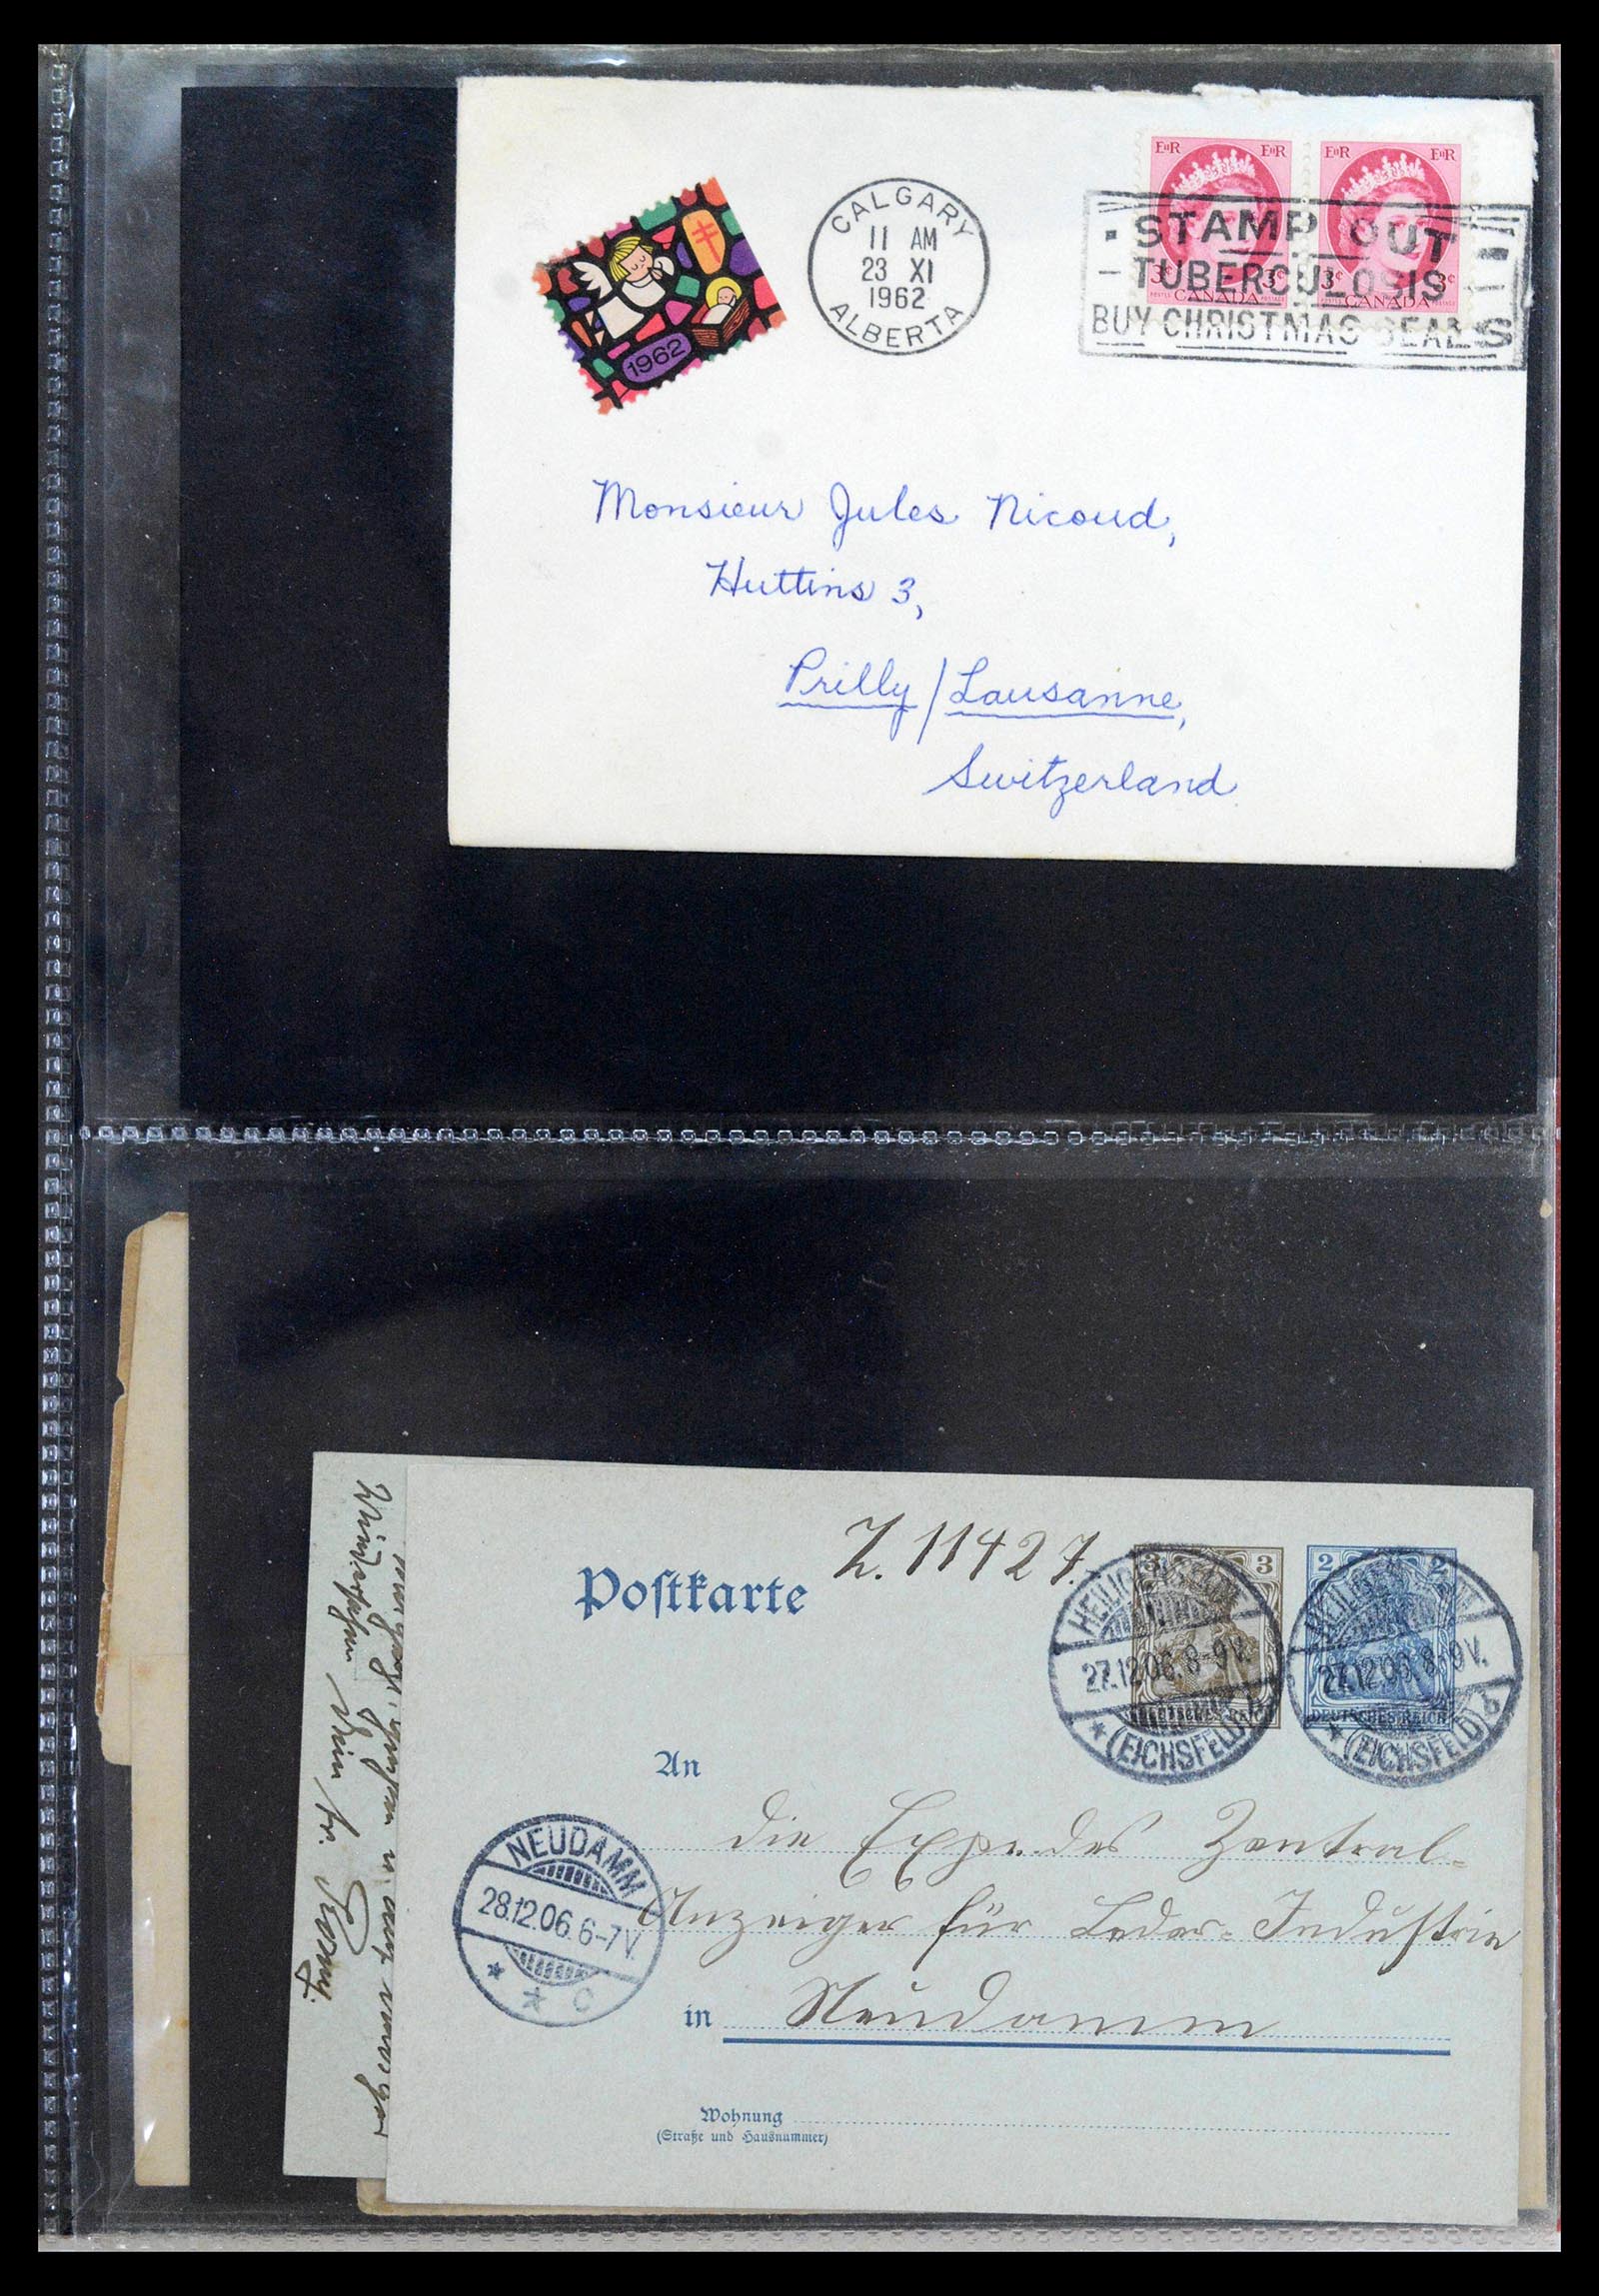 CALGARY
11 AM
23 XI
1962
ALBERTA
EIIR EIIR
EIIR EIIR
STAMP OUT
TUBERCULOSIS
BUY CHRISTMAS SEALS
3c 3c
3c 3c
POSTES CANADA POSTAGE
POSTES CANADA POSTAGE
1962
Monsieur Jules Nicoud,
Huttins 3,
Prilly / Lausanne,
Switzerland
Postkarte
Z. 11427.
3 3
2 2
HEILIGENSTADT
27.12.06. 8-9V.
(EICHSFELD)
DEUTSCHES REICH
HEILIGENSTADT
27.12.06. 8-9V.
(EICHSFELD) b
DEUTSCHES REICH
An
die Exped. des Zentral-
Anzeiger für Leder-Industrie
in Neudamm
NEUDAMM
28.12.06. 6-7V.
* c
Wohnung
(Straße und Hausnummer)